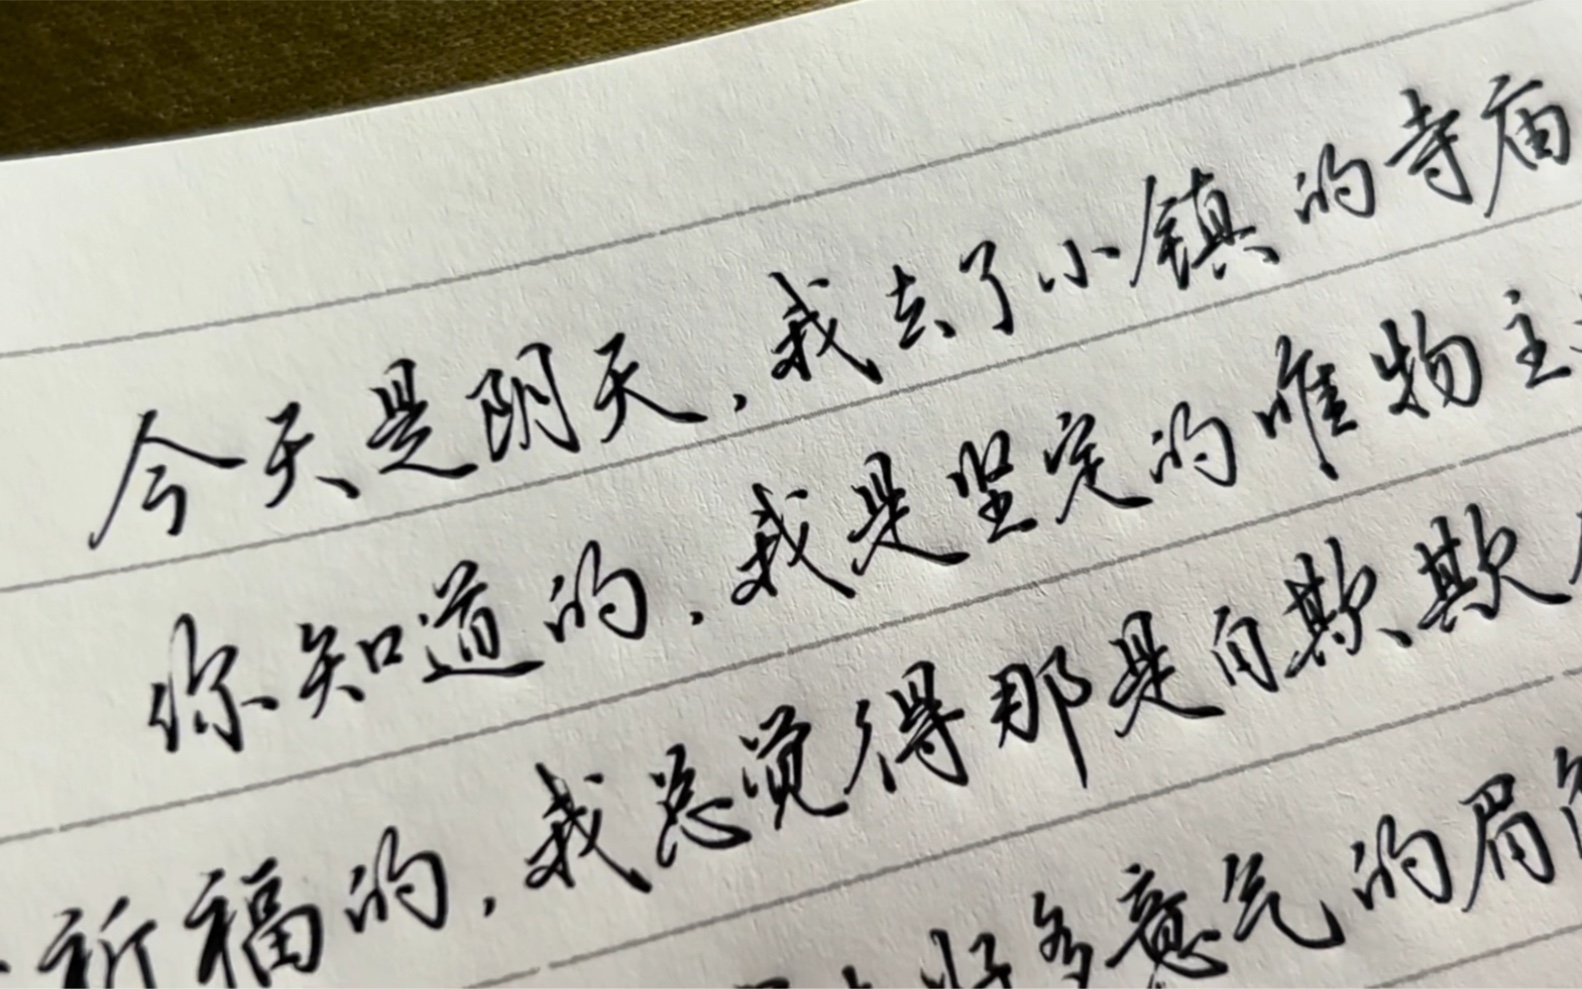 今天是阴天,我去了小镇的寺庙
你知道的,我是坚定的唯物主
祈福的,我总觉得那是自欺欺
好多意气的眉